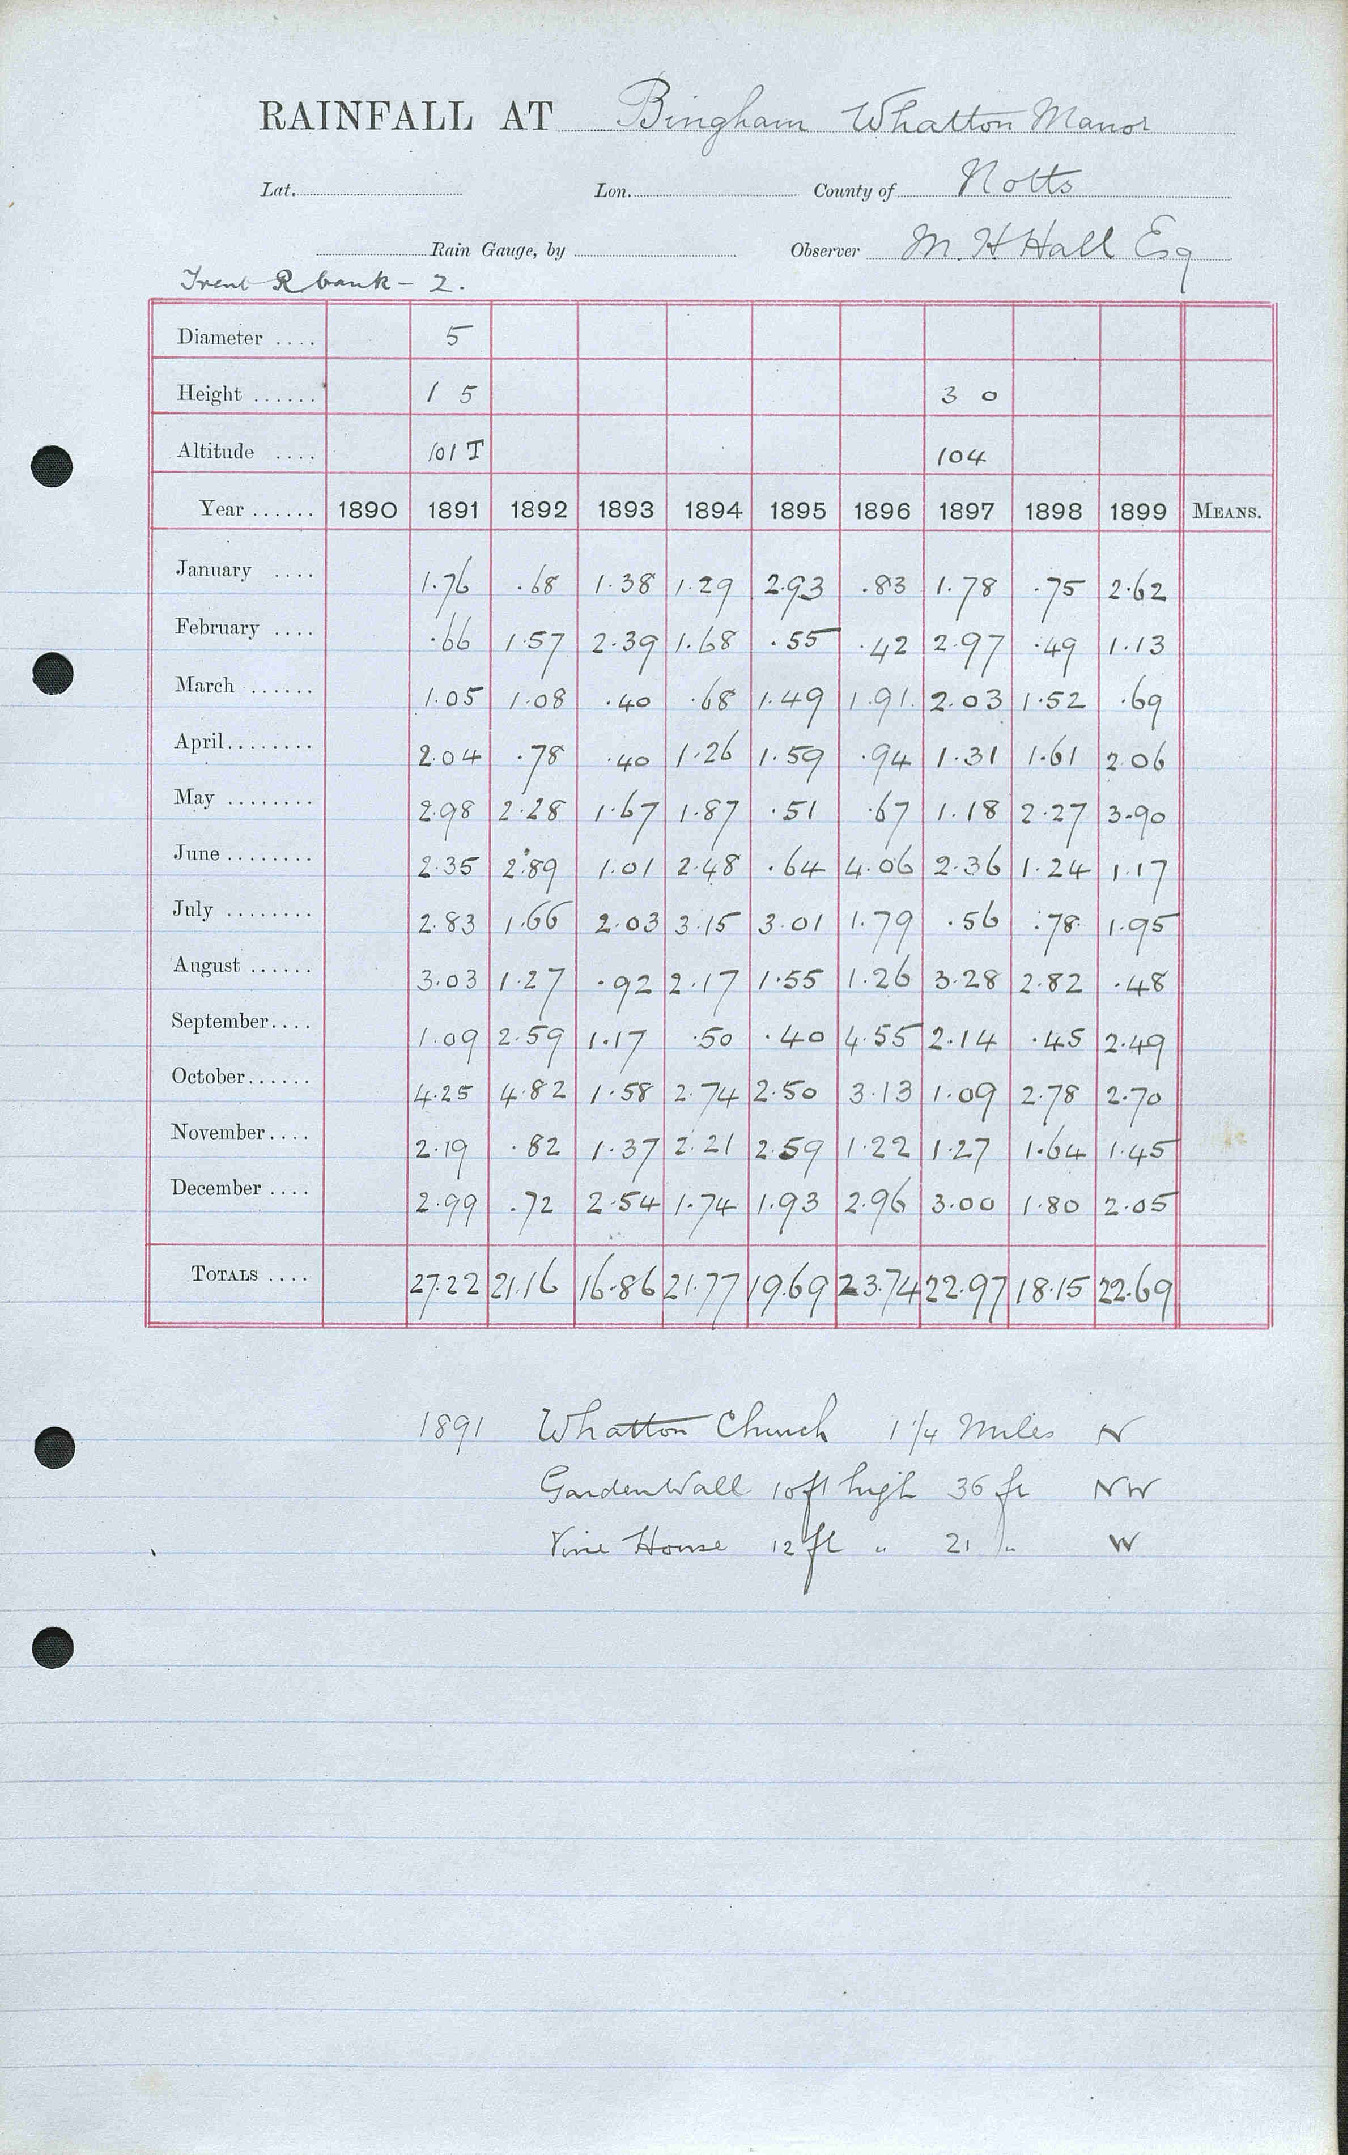 RAINFALL AT Bingham Whatton Manor
Lat. Lon. County of Notts
Rain Gauge, by Observer M. H Hall Esq
Trent R bank - 2.
Diameter .... 5
Height ...... 1 5 3 0
Altitude .... 101 T 104
Year ...... 1890 1891 1892 1893 1894 1895 1896 1897 1898 1899 MEANS.
January .... 1.76 .68 1.38 1.29 2.93 .83 1.78 .75 2.62
February .... .66 1.57 2.39 1.68 .55 .42 2.97 .49 1.13
March ...... 1.05 1.08 .40 .68 1.49 1.91 2.03 1.52 .69
April........ 2.04 .78 .40 1.26 1.59 .94 1.31 1.61 2.06
May ........ 2.98 2.28 1.67 1.87 .51 .67 1.18 2.27 3.90
June ........ 2.35 2.89 1.01 2.48 .64 4.06 2.36 1.24 1.17
July ........ 2.83 1.66 2.03 3.15 3.01 1.79 .56 .78 1.95
August ...... 3.03 1.27 .92 2.17 1.55 1.26 3.28 2.82 .48
September.... 1.09 2.59 1.17 .50 .40 4.55 2.14 .45 2.49
October...... 4.25 4.82 1.58 2.74 2.50 3.13 1.09 2.78 2.70
November.... 2.19 .82 1.37 2.21 2.59 1.22 1.27 1.64 1.45
December .... 2.99 .72 2.54 1.74 1.93 2.96 3.00 1.80 2.05
TOTALS .... 27.22 21.16 16.86 21.77 19.69 23.74 22.97 18.15 22.69
1891 Whatton Church 1 1/4 Miles N
Garden Wall 10ft high 36 ft NW
Vine House 12 ft " 21 " W